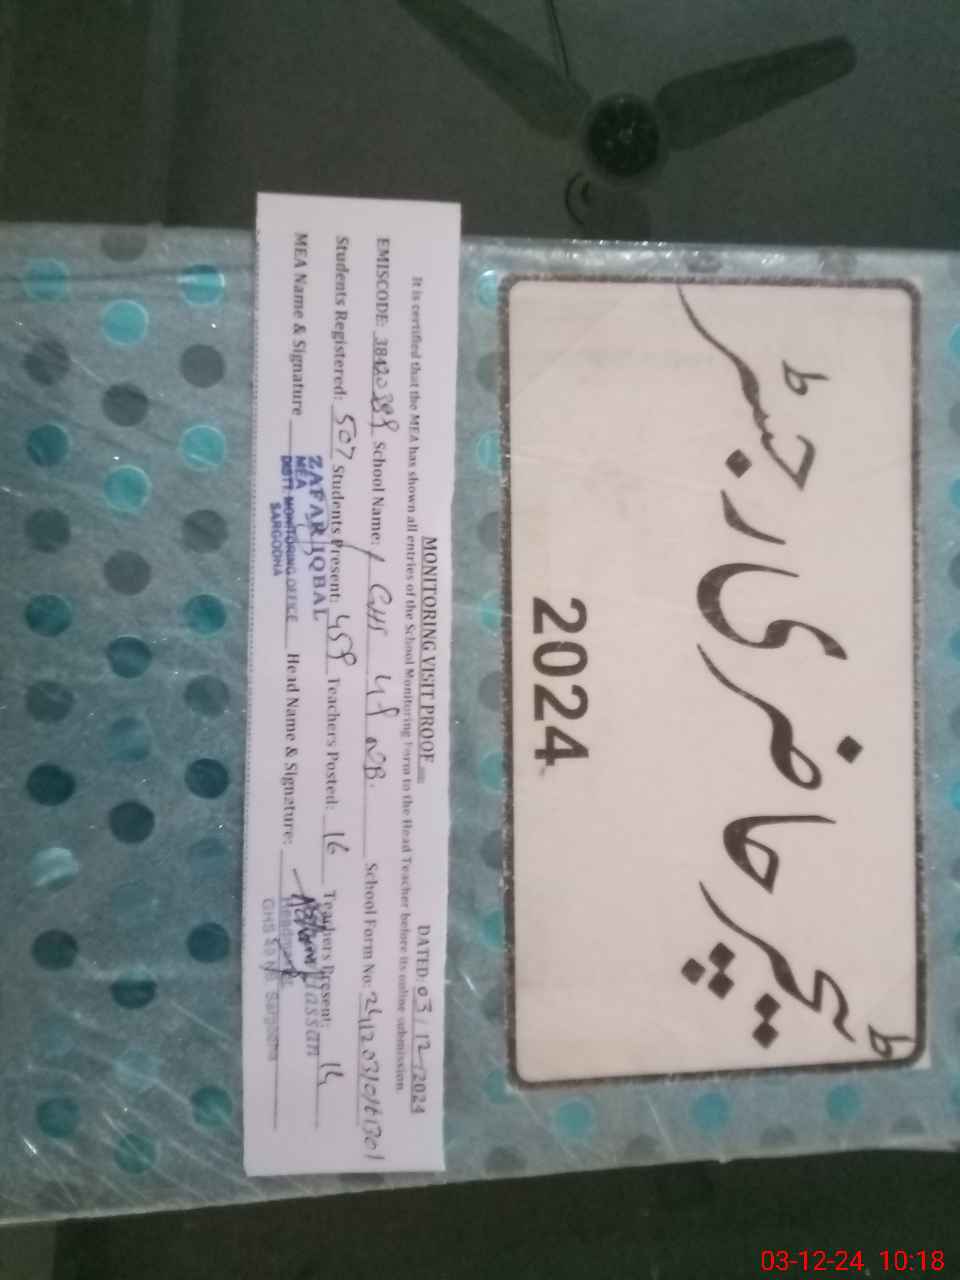 ٹیچر حاضری رجسٹر
2024
MONITORING VISIT PROOF
DATED: 03/12/2024
It is certified that the MEA has shown all entries of the School Monitoring Form to the Head Teacher before its online submission
EMISCODE: 38420389 School Name: GHS 49 NB. School Form No:
Students Registered: 507 Students Present: 459 Teachers Posted: 16 Teachers Present: 14
MEA Name & Signature Head Name & Signature:
ZAFAR IQBAL
MEA
DISTT. MONITORING OFFICE
SARGODHA
Hassan
Headmaster
GHS 49 NB Sargodha
03-12-24 10:18